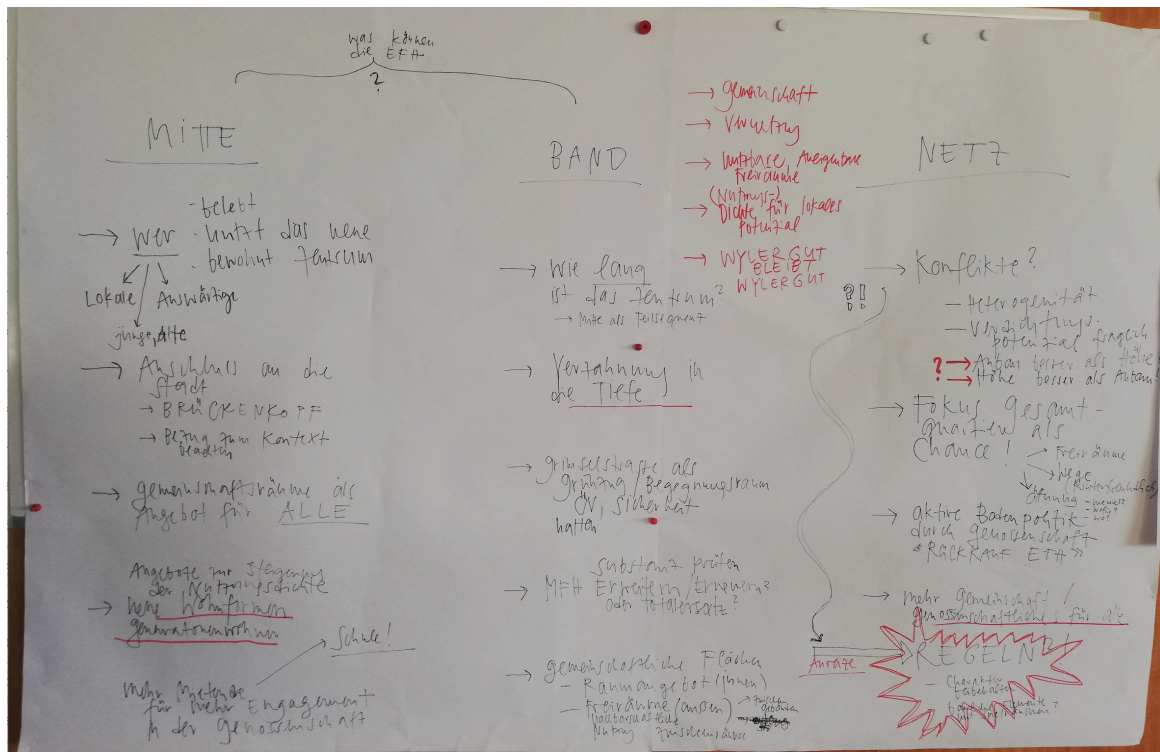 was können
die EFH
?
MITTE
→ wer
- belebt
- nutzt das neue
- bewohnt Zentrum
Lokale
Auswärtige
junge, Alte
→ Anschluss an die
Stadt
→ BRÜCKENKOPF
→ Bezug zum Kontext
beachten
→ gemeinschaftsräume als
Angebot für ALLE
Angebote zur Steigerung
der Nutzungsdichte
→ neue Wohnformen
generationenwohnen
Schule!
mehr Mietende
für mehr Engagement
in der Genossenschaft
BAND
→ wie lang
ist das Zentrum?
→ Mitte als Teilsegment
→ Verzahnung in
die Tiefe
→ grimselstrasse als
grünzug/Begegnungsraum
ÖV, Sicherheit
halten
Substanz prüfen
→ MFH Erweitern/Erneuern?
oder totalersatz?
→ gemeinschaftliche Flächen
- Raumangebot (innen)
- Freiräume (aussen)
nachbarschaftliche
Nutzung Zwischenräume
→ gemeinschaft
→ Vernetzung
→ Nutzbare, Aneigenbare
Freiräume
(Nutzungs-)
→ Dichte für lokales
potenzial
→ WYLERGUT
BLEIBT
WYLERGUT
NETZ
?! → Konflikte?
- Heterogenität
- Verdichtungs-
potenzial fraglich
? → Anbau besser als Höhe
→ Höhe besser als Anbau
→ Fokus gesamt-
quartier als
Chance!
→ Freiräume
→ Wege
→ aktive Bodenpolitik
durch genossenschaft
"RÜCKKAUF EFH"
→ mehr gemeinschaft/
genossenschaftliches für alle
Anreize
REGELN?!
- Charakter
beibehalten